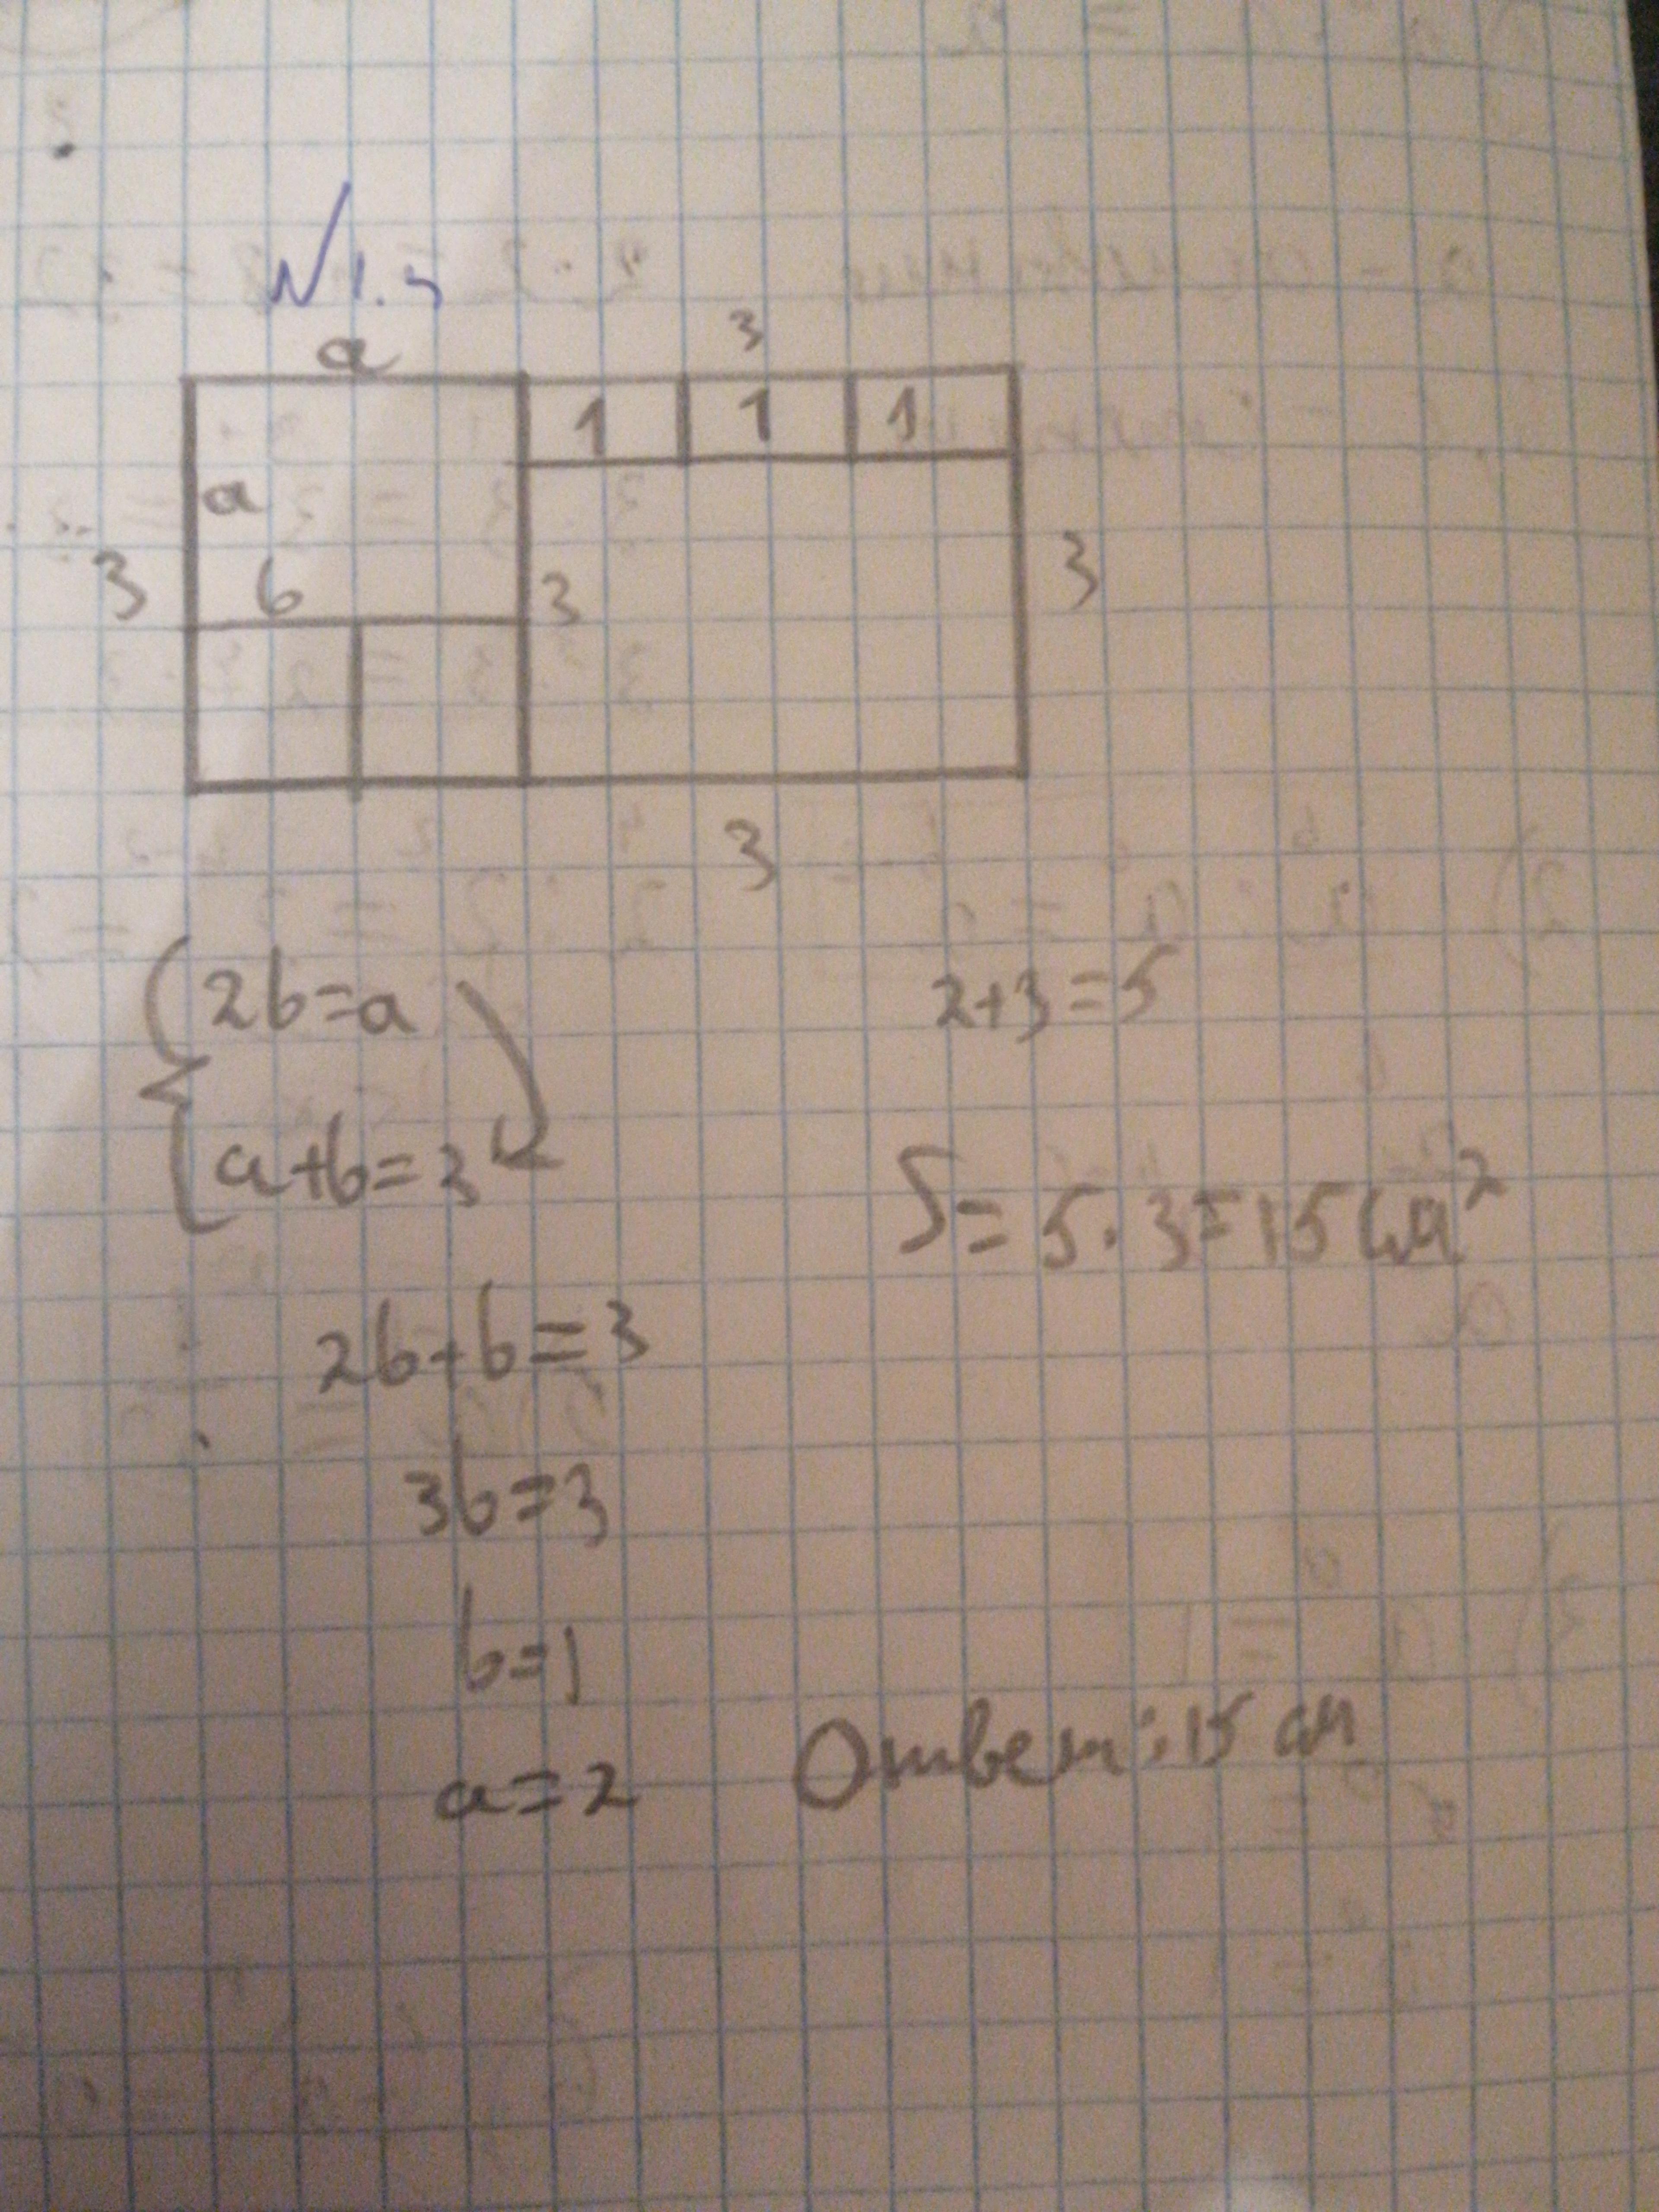 a
3
1 1 1
a
3 b 3 3
3
2b=a
a+b=3
2b+b=3
3b=3
b=1
a=2
2+3=5
S=5·3=15 см²
Ответ: 15 см